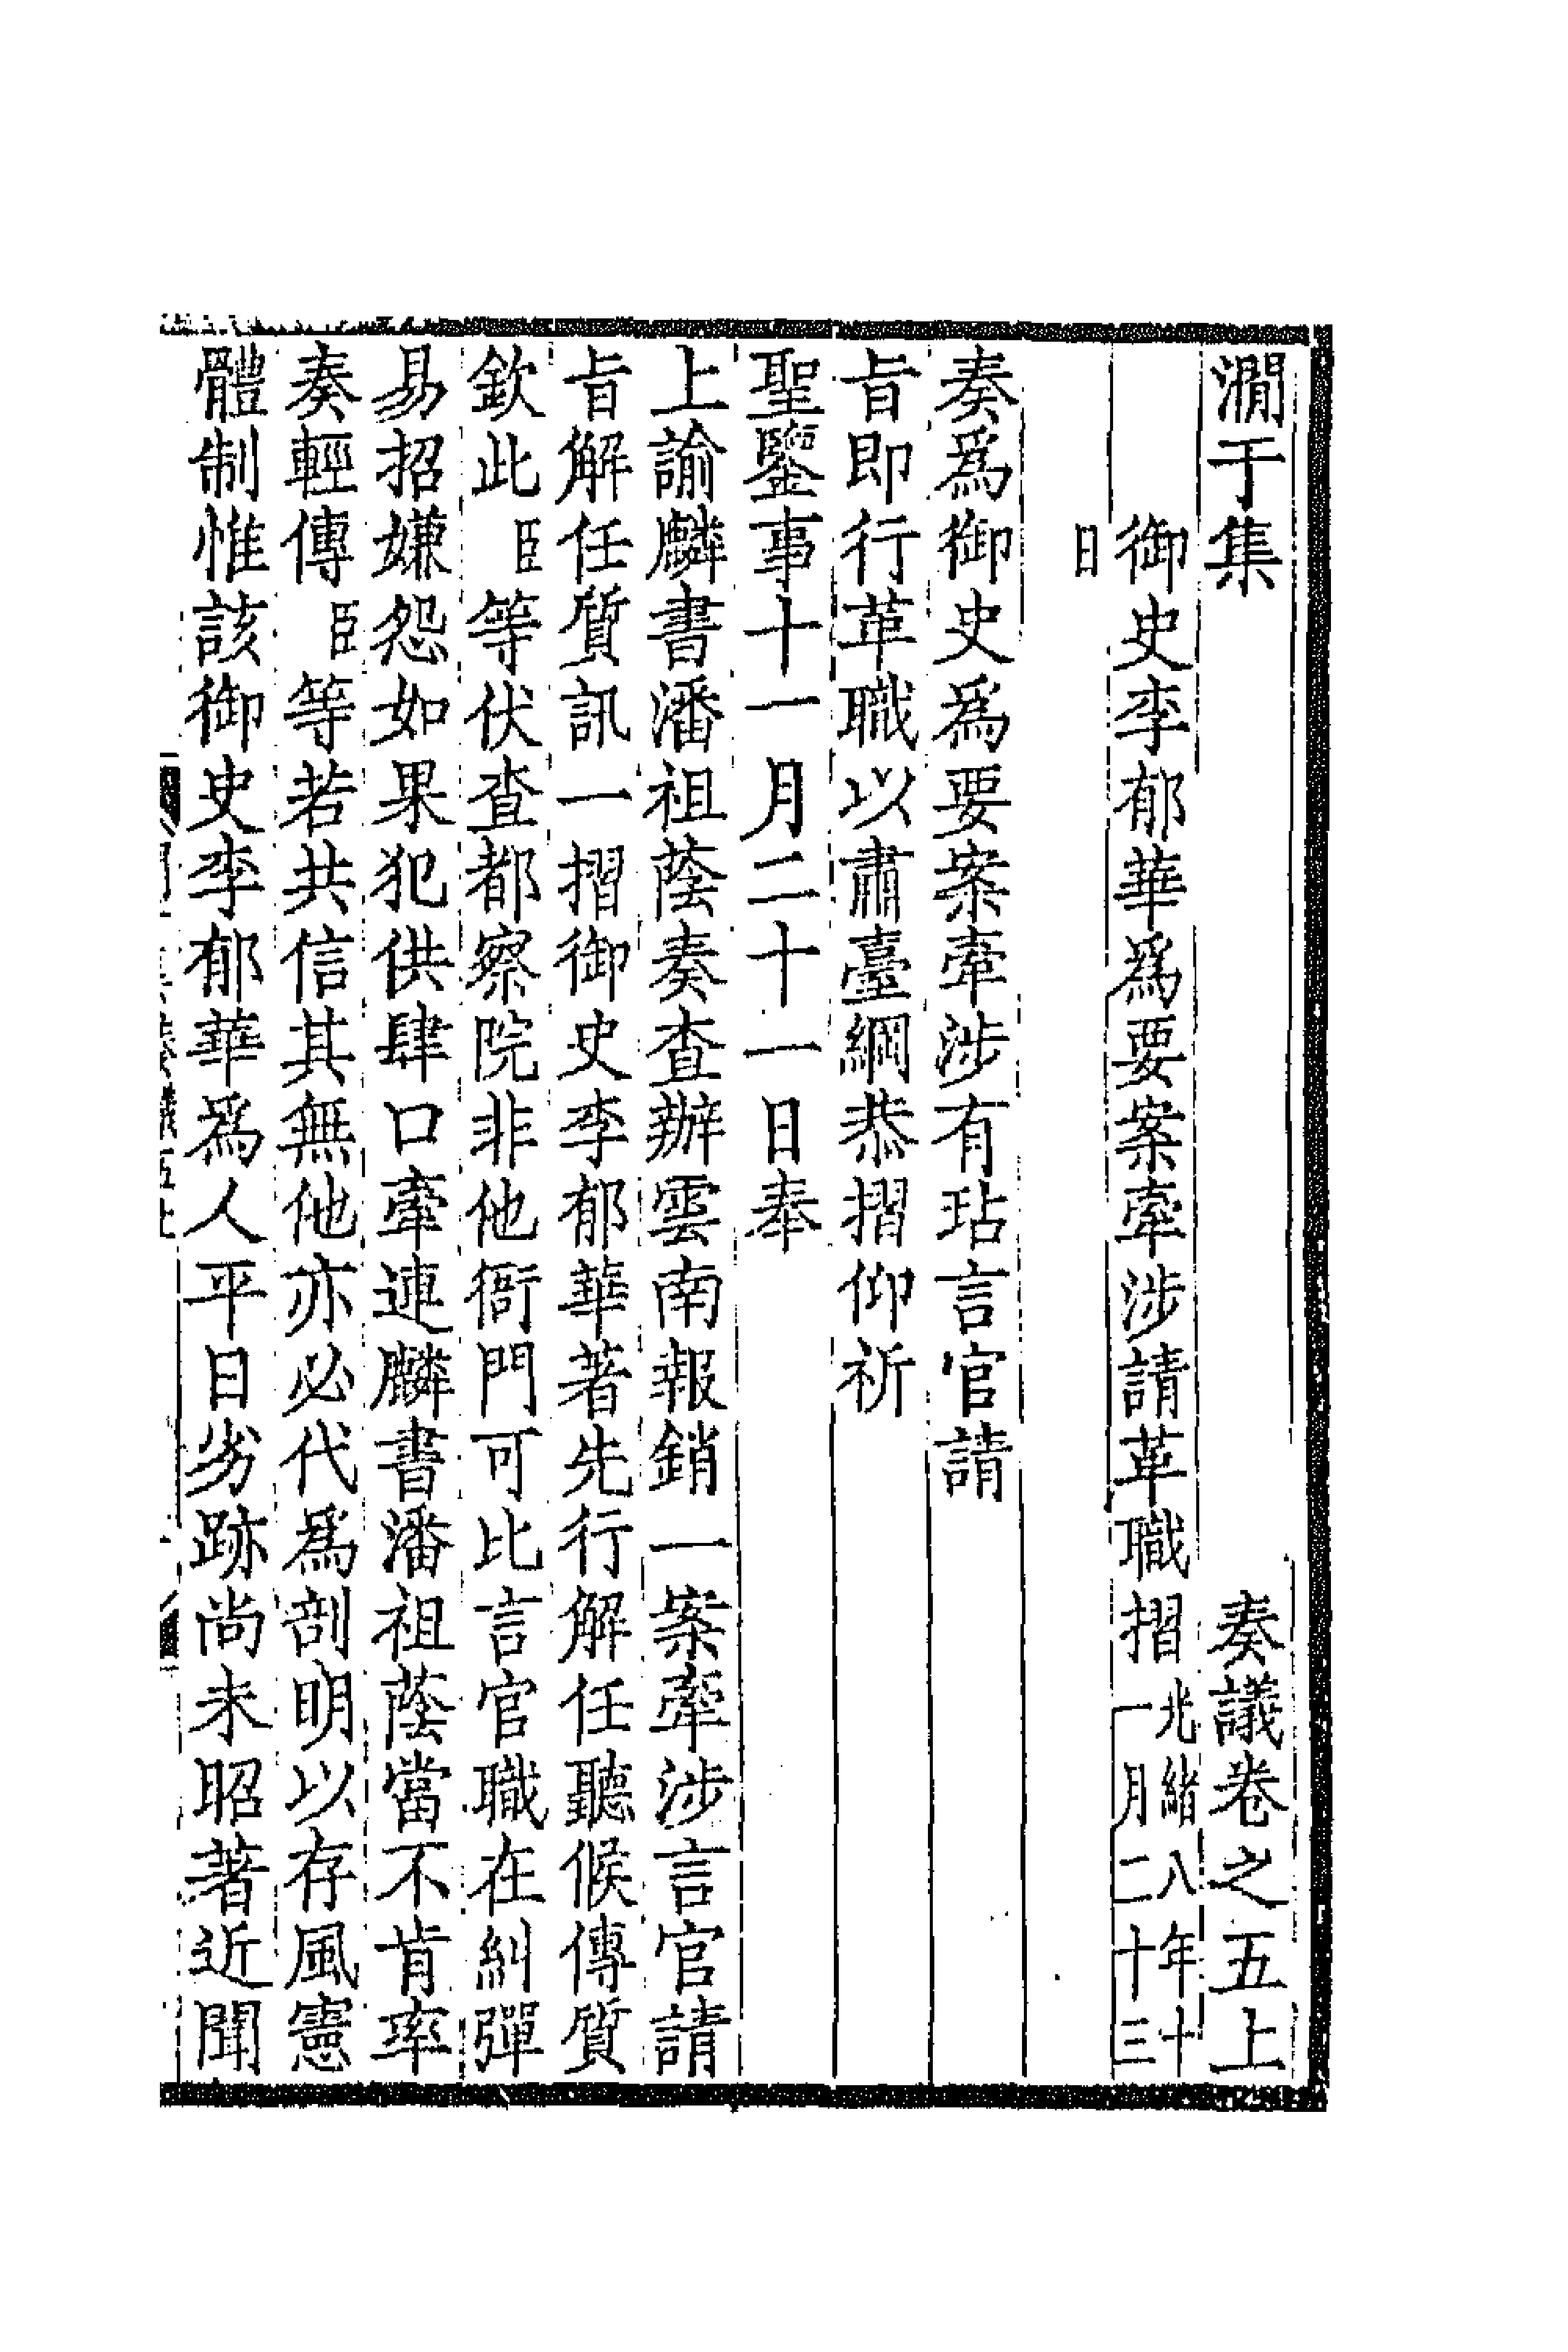 澗于集　奏議卷之五上
御史李郁華爲要案牽涉請革職摺光緒八年十一月二十三
日
奏爲御史爲要案牽涉有玷言官請
旨即行革職以肅臺綱恭摺仰祈
聖鑒事十一月二十一日奉
上諭麟書潘祖蔭奏查辦雲南報銷一案牽涉言官請
旨解任質訊一摺御史李郁華著先行解任聽候傳質
欽此臣等伏查都察院非他衙門可比言官職在糾彈
易招嫌怨如果犯供肆口牽連麟書潘祖蔭當不肯率
奏輕傳臣等若共信其無他亦必代爲剖明以存風憲
體制惟該御史李郁華爲人平日劣跡尚未昭著近聞